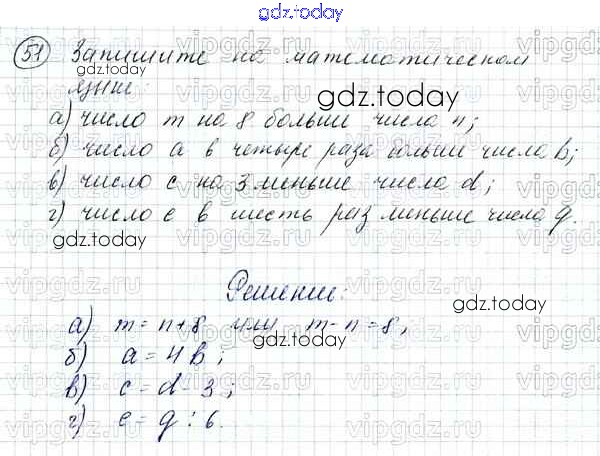 gdz.today
51 Запишите на математическом
gdz.today
языке:
gdz.today
а) число m на 8 больше числа n;
б) число a в четыре раза больше числа b;
в) число c на 3 меньше числа d;
г) число e в шесть раз меньше числа q.
gdz.today
Решение:
gdz.today
а) m = n + 8 или m - n = 8;
gdz.today
б) a = 4b;
в) c = d - 3;
г) e = q : 6.
vipgdz.ru